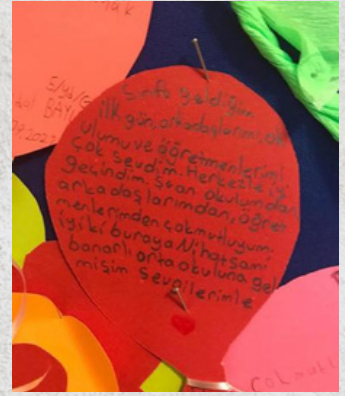 5/yd/G
BAY
Sınfa geldiğim
ilk gün, arkadaşlarımı, ok
ulumu ve öğretmenlerimi
çok sevdim. Herkezle iyi
geçindim. Şuan okulumdan
arkadaşlarımdan, öğret
menlerimden çok mutluyum.
iyiki buraya Nihat Sami
banarlı orta okuluna gel
mişim Sevgilerimle